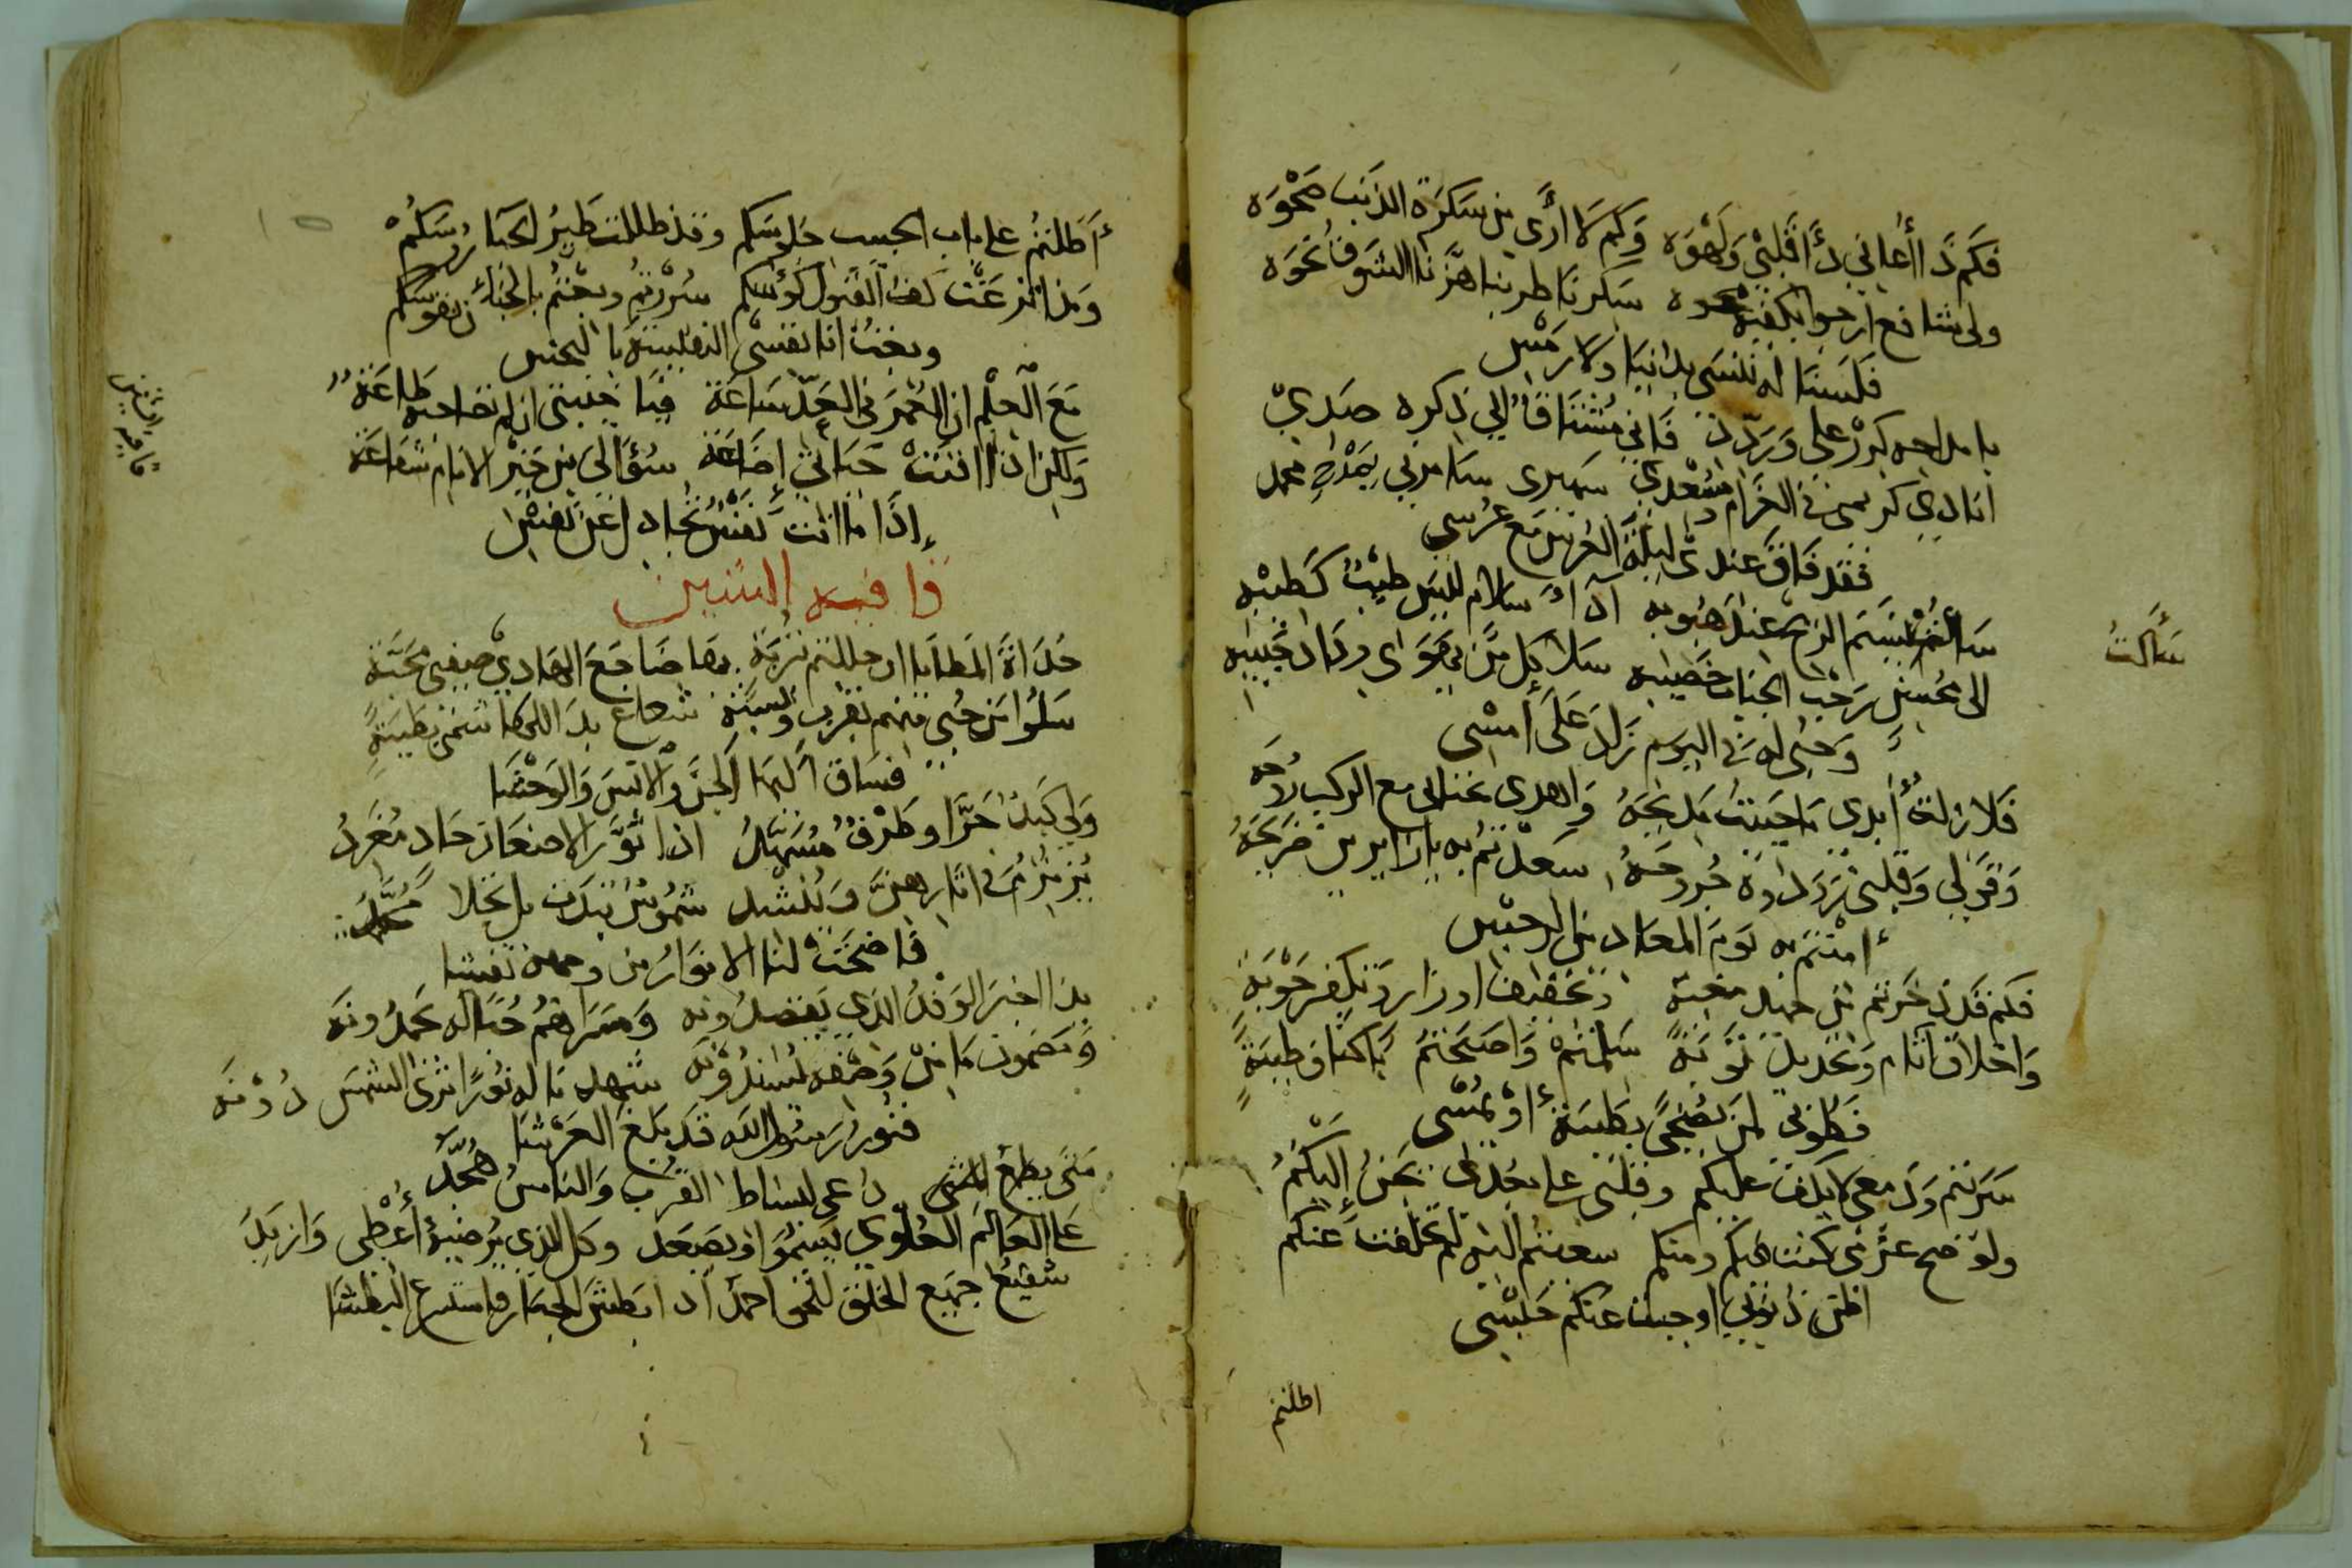 فكم ذا أعاني ذا قلبي ولهوه وكم لا أرى من سكرة الذنب صحوه
ولي شافع أرجوا يكفيه محوه سكرنا طربنا هزنا الشوق نحوه
فلسنا له ننسى بدانيا ولا رمس
يا مداحه كرر علي وردد فاني مشتاقا الي ذكره صدي
انادي كريمى في الغرام ومسعدي سميرى سامرني بمداح محمد
فقد فاق عندى ليلة العرس مع عرسي
سألت نسيم الريح عند هبوبه اداء سلام لليس طيب كطيبه
الى محسن رحب الجناب خصيبه سلا كل من يهوى وداد حبيبه
وحبى له في اليوم زاد على أمسى
فلا زلت أبدي ما حييت مديحه واهدى ثنائي مع الركب روحه
وقولى وقلبى نرد داوة جروحه سعدتم به يا زايرين ضريحه
أمنتم به يوم المعاد من الرجس
فكم قد ذخرتم من جميل محبة وتخفيف اوزار وتكفير حوبة
واخلاق آثام وتجديد توبة سلمتم واصبحتم باكناف طيبة
فطوبى لمن يضحى بطيبة أو يمسى
سرتم ودمعى لا يكف عليكم وقلبى على بعدى يحن إليكم
ولو صح عزمى كنت فيكم ومنكم سعيتم اليه لم تخلفت عنكم
اظن ذنوبي اوجبت عنكم حبسى
اطلتم
سألت
أطلتم على باب الحبيب جلوسكم وقد ظللت طير الحيا رؤسكم
ومذ اترعت كف القبول كؤسكم سررتم وبعتم بالجنان نفوسكم
وبعت انا نفسى النفيسة بالبخس
مع العلم ان العمر في العد ساعة فيا خيبتى ان لم تصاحبه طاعة
ولكن اذا افنت حياتي إضاعة سؤالى من خير الانام شفاعة
إذا ما اتت نفس تجادل عن نفس
قافية الشين
حداة المطايا ان حللتم بتربة بها ضاجع الهادي صفي محبة
سلوا من حبي منهم بقرب ونسبة شعاع بدا للركائب من بطيبة
فساق اليها الجن والانس والوحشا
ولي كبد حرا وطرف مسهد اذا ثور الاضعان حاد مغرد
يزمزم في اثارهن وينشد شموس تبدت بل تجلا محمد
فاضحت لنا الانوار من وجهه تغشا
بذا اخبر الوفد الذي يفضلونه ومسراهم حبا له يحمدونه
ويصغون ما من وصفه يسندونه شهدنا له نورا ترى الشمس دونه
فنور رسول الله قد بلغ العرشا
دعى لبساط القرب والناس هجد
على العالم العلوي يسموا ويصعد وكل الذي يرضيه أعطى وازيد
شفيع جميع الخلق للنحو احمد اذا بطش الجبار واسترع البطشا
قافية الشين